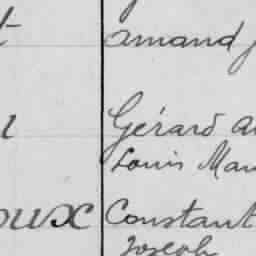 t amand
Gérard
Louis
oux Constant
Joseph